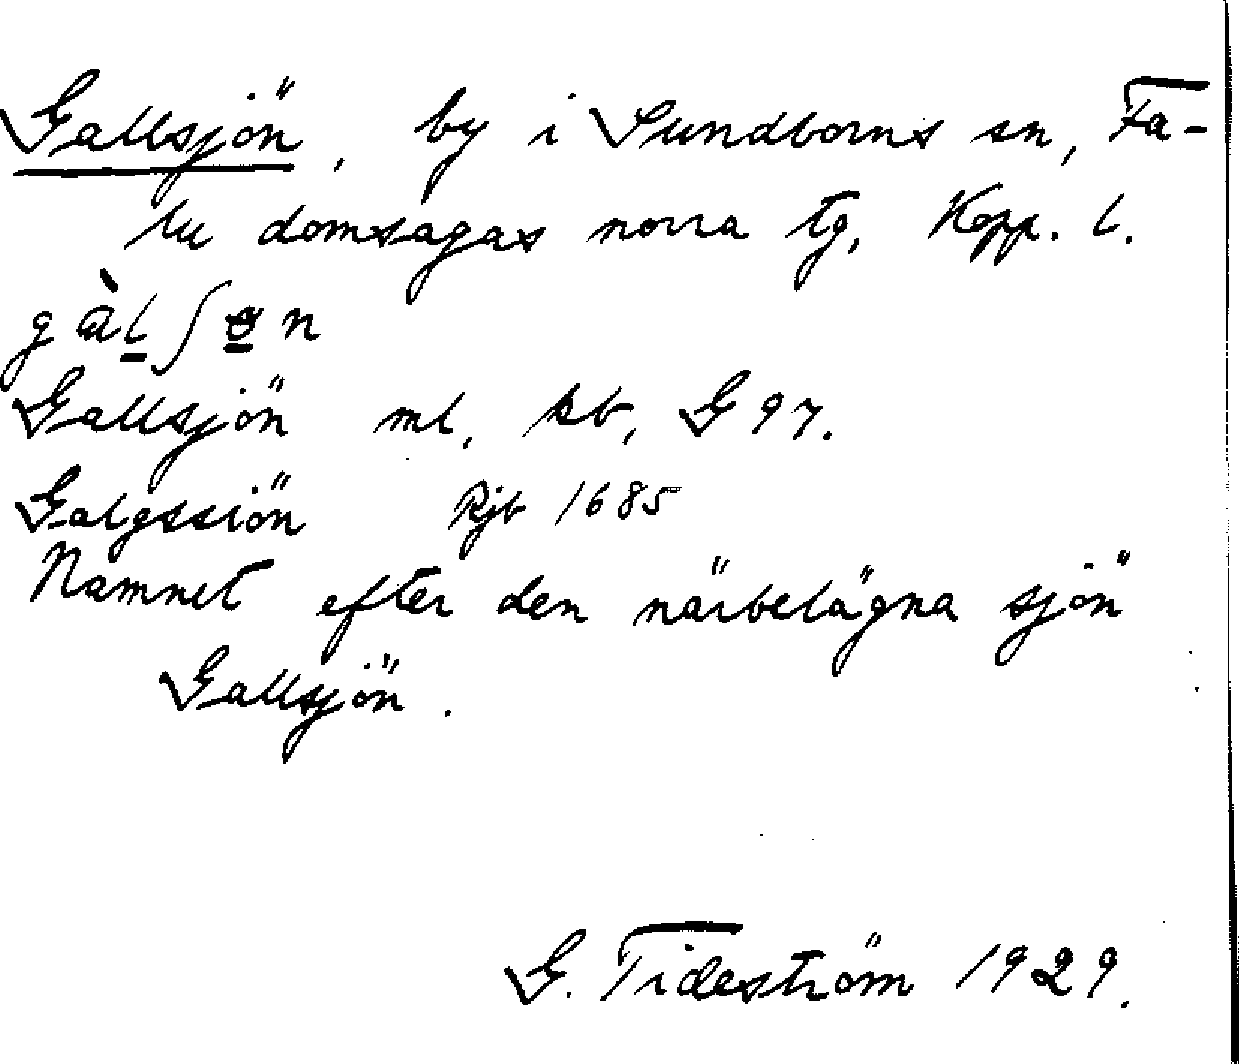 Gallsjön, by i Sundborns sn, Fa-
lu domsagas norra tg, Kopp. l.
gàlʃen
Gallsjön ml, kb, G 97.
Galgssiön Rjb 1685
Namnet efter den närbelägna sjön
Gallsjön.
G. Tideström 1929.